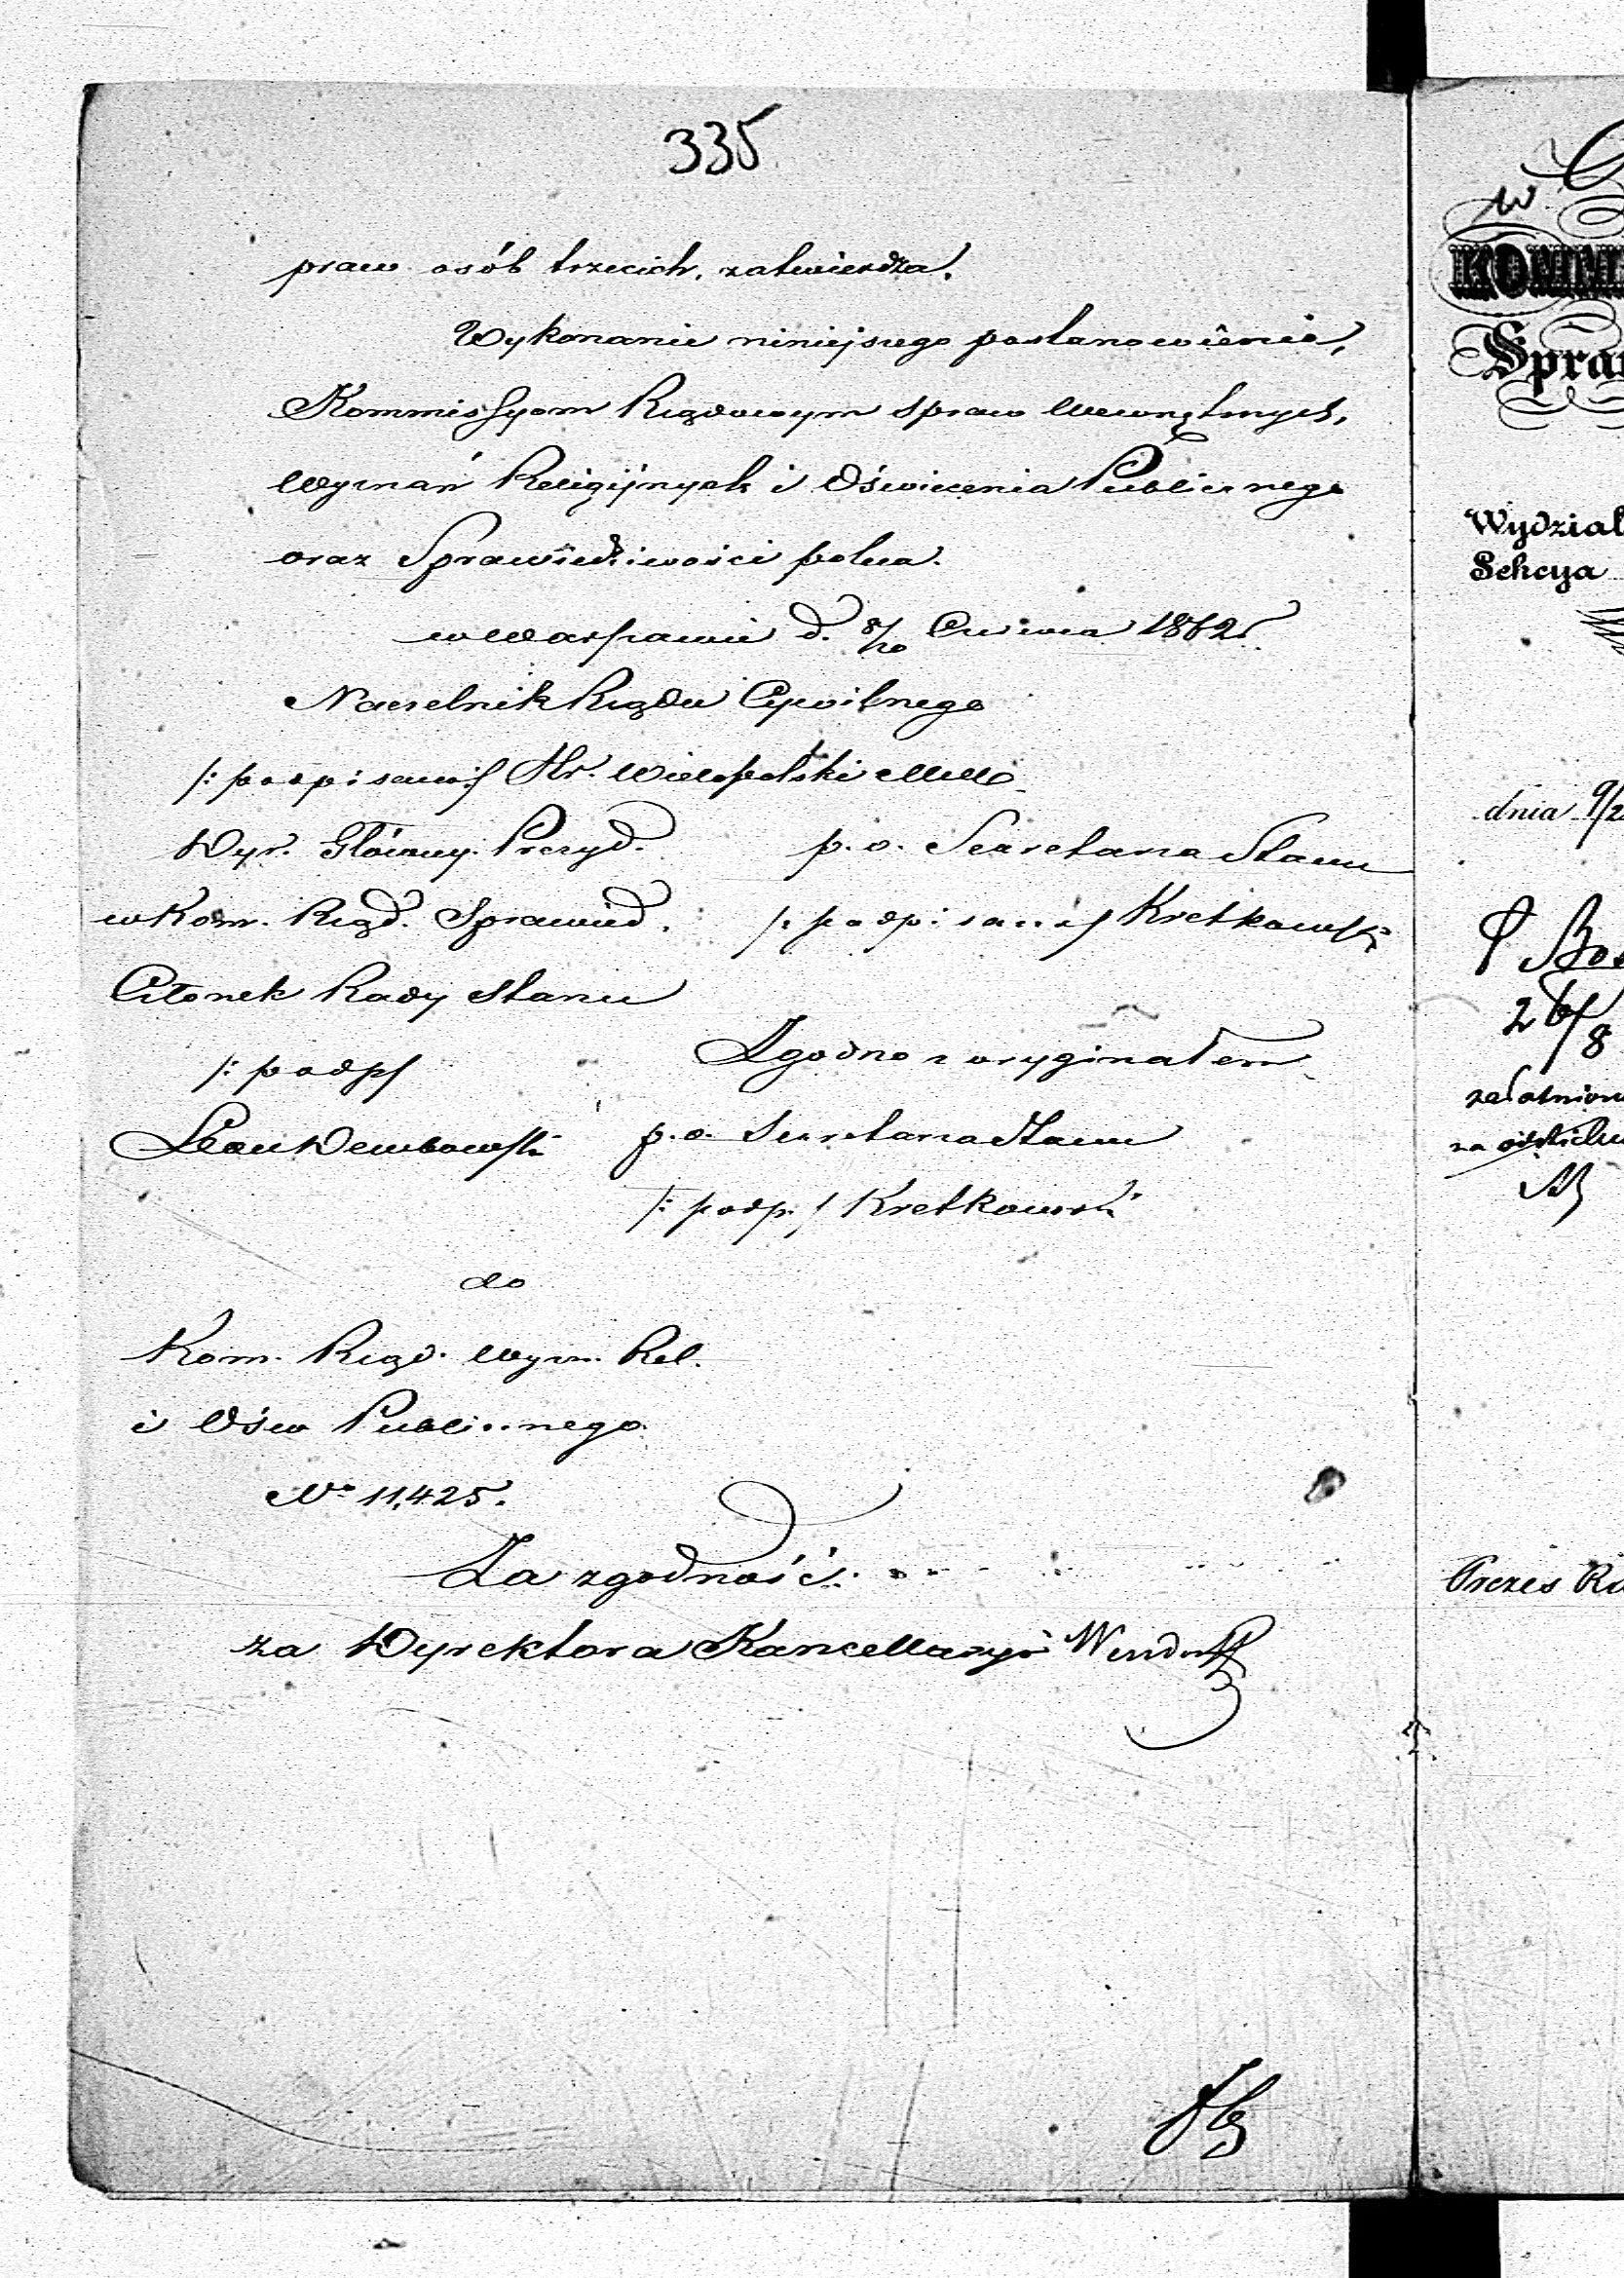 335
praw osób trzecich, zatwierdza.
Wykonanie niniejszego postanowienia,
Kommissyom Rządowym spraw Wewnętrznych,
Wyznań Religijnych i Oświecenia Publicznego
oraz Sprawiedliwości poleca.
w Warszawie d. 8/20 Czerwca 1862 r.
Naczelnik Rządu Cywilnego
/: podpisano :/ Hr. Wielopolski
Dyr. Główny Prezyd.
w Kom. Rząd. Sprawied.
Członek Rady Stanu
/: podp /
Leon Dembowski
p. o. Sekretarza Stanu
/: podpisano :/ Kretkowski
Zgodno z oryginałem
p. o. Sekretarza Stanu
/: podp. / Kretkowski
do
Kom. Rząd. Wyzn. Rel.
i Ośw Publicznego
No 11,425.
Za zgodność
za Dyrektora Kancellaryi
KOMM
Spra
Wydział
Sekcya
dnia 9/2
26/8
Prezes